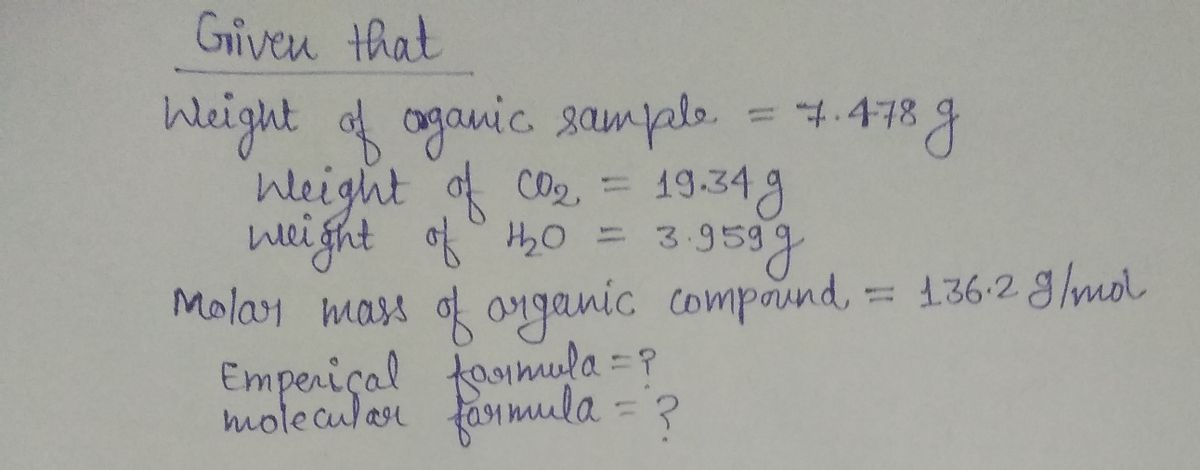 Given that
Weight of organic sample = 7.478 g
Weight of CO2 = 19.34 g
weight of H2O = 3.959 g
Molar mass of organic compound = 136.2 g/mol
Emperical formula = ?
molecular formula = ?